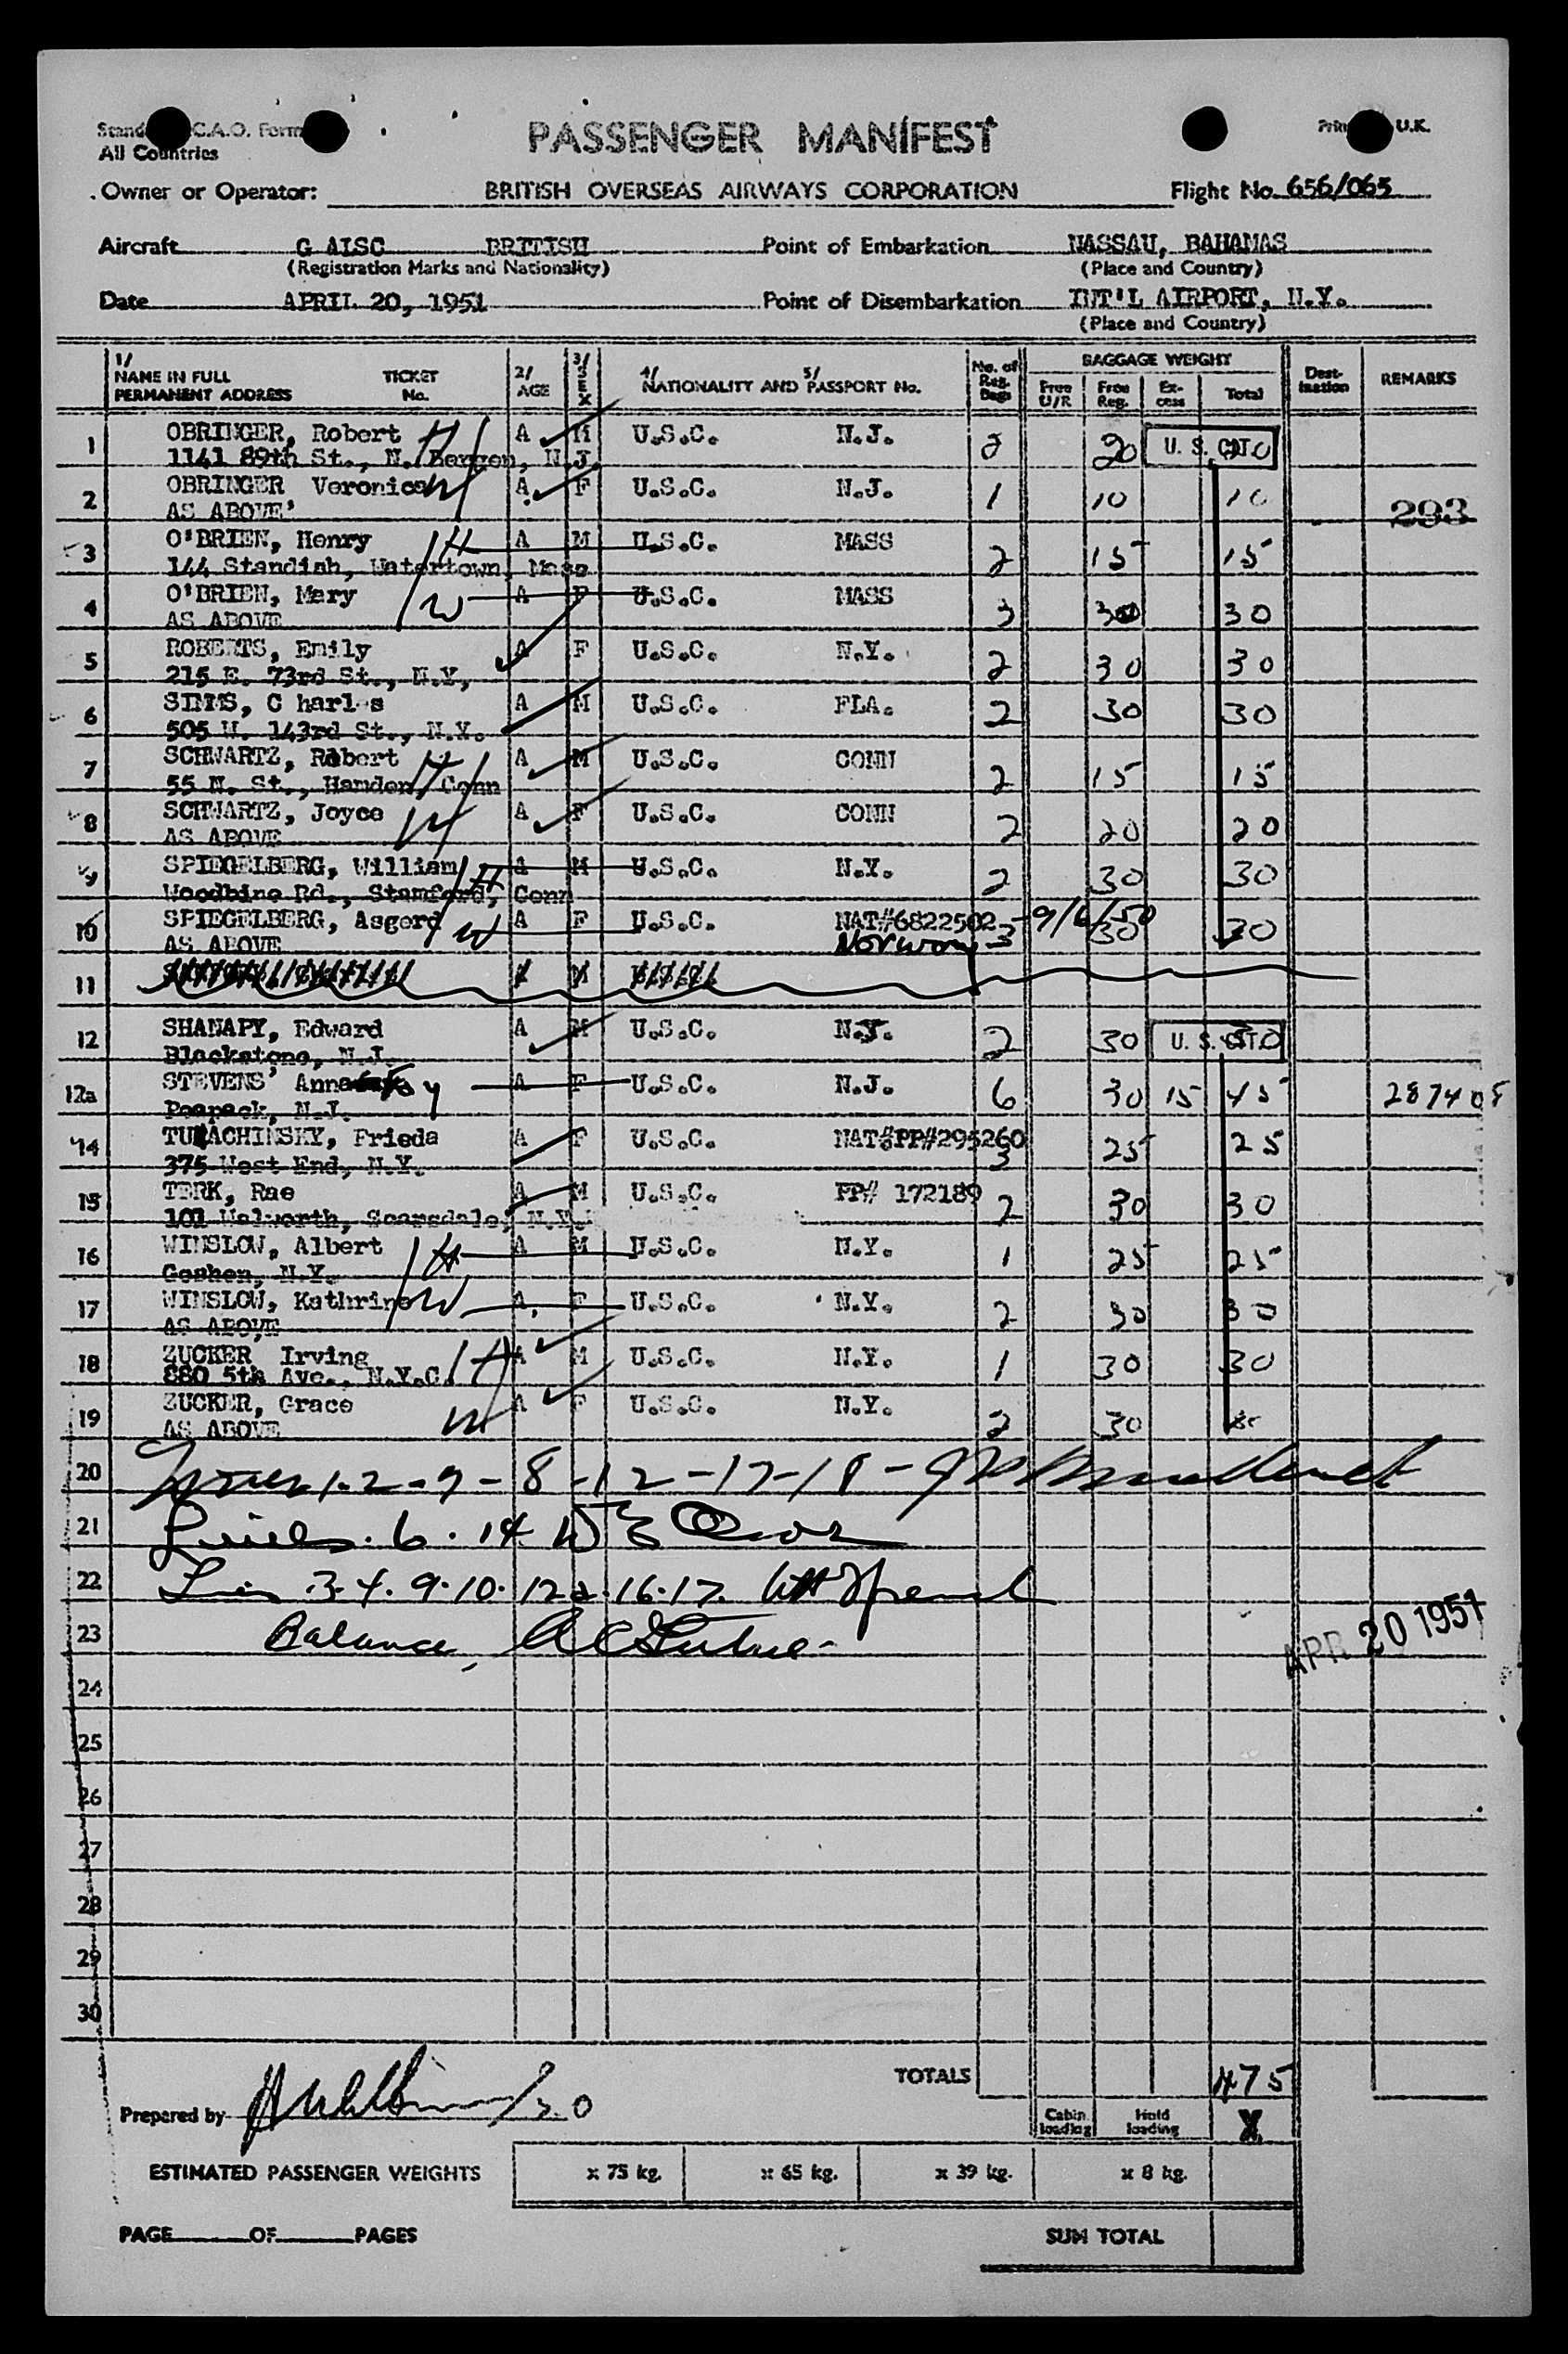 C.A.O. Form
All Countries
PASSENGER MANIFEST
U.K.
Owner or Operator: BRITISH OVERSEAS AIRWAYS CORPORATION Flight No. 656/065
Aircraft G AISC BRITISH Point of Embarkation NASSAU, BAHAMAS
(Registration Marks and Nationality) (Place and Country)
Date APRIL 20, 1951 Point of Disembarkation INT'L AIRPORT, N.Y.
(Place and Country)
1/ NAME IN FULL PERMANENT ADDRESS TICKET No. 2/ AGE 3/ SEX 4/ NATIONALITY AND 5/ PASSPORT No. No. of Reg. Bags BAGGAGE WEIGHT Free U/R Free Reg. Ex-cess Total Dest-ination REMARKS
1 OBRINGER, Robert H A M U.S.C. N.J. 2 20 U. S. CIT. 20
1141 89th St., N. Bergen, N.J.
2 OBRINGER Veronica W A F U.S.C. N.J. 1 10 10 293
AS ABOVE
3 O'BRIEN, Henry H A M U.S.C. MASS 2 15 15
144 Standish, Watertown, Mass
4 O'BRIEN, Mary W A F U.S.C. MASS 3 30 30
AS ABOVE
5 ROBERTS, Emily A F U.S.C. N.Y. 2 30 30
215 E. 73rd St., N.Y,
6 SIMMS, C harles A M U.S.C. FLA. 2 30 30
505 W. 143rd St., N.Y.
7 SCHWARTZ, Robert H A M U.S.C. CONN 2 15 15
55 N. St., Hamden, Conn
8 SCHWARTZ, Joyce W A F U.S.C. CONN 2 20 20
AS ABOVE
9 SPIEGELBERG, William H A M U.S.C. N.Y. 2 30 30
Woodbine Rd., Stamford, Conn
10 SPIEGELBERG, Asgerd W A F U.S.C. NAT#6822502 - 9/6/50 3 30 30
AS ABOVE Norway
11 M
12 SHANAPY, Edward A M U.S.C. N.J. 2 30 U. S. CIT. 30
Blackstone, N.J.
12a STEVENS' Anna A F U.S.C. N.J. 6 30 15 45 287405
Peapack, N.J.
14 TURACHINSKY, Frieda A F U.S.C. NAT#PP#295260 3 25 25
375 West End, N.Y.
15 TERK, Rae A M U.S.C. PP# 172189 2 30 30
101 Walworth, Scarsdale, N.Y.
16 WINSLOW, Albert H A M U.S.C. N.Y. 1 25 25
Goshen, N.Y.
17 WINSLOW, Kathrine W A F U.S.C. N.Y. 2 30 30
AS ABOVE
18 ZUCKER Irving H A M U.S.C. N.Y. 1 30 30
880 5th Ave., N.Y.C.
19 ZUCKER, Grace W A F U.S.C. N.Y. 2 30
AS ABOVE
20 1-2-7-8-12-17-18-
21 Lines. 6. 14.
22 3-4. 9-10. 12a. 16-17.
23 Balance, APR 20 1951
24
25
26
27
28
29
30
TOTALS 475
Prepared by
Cabin loading Hold loading X
ESTIMATED PASSENGER WEIGHTS x 75 kg. x 65 kg. x 39 kg. x 8 kg.
PAGE OF PAGES SUM TOTAL